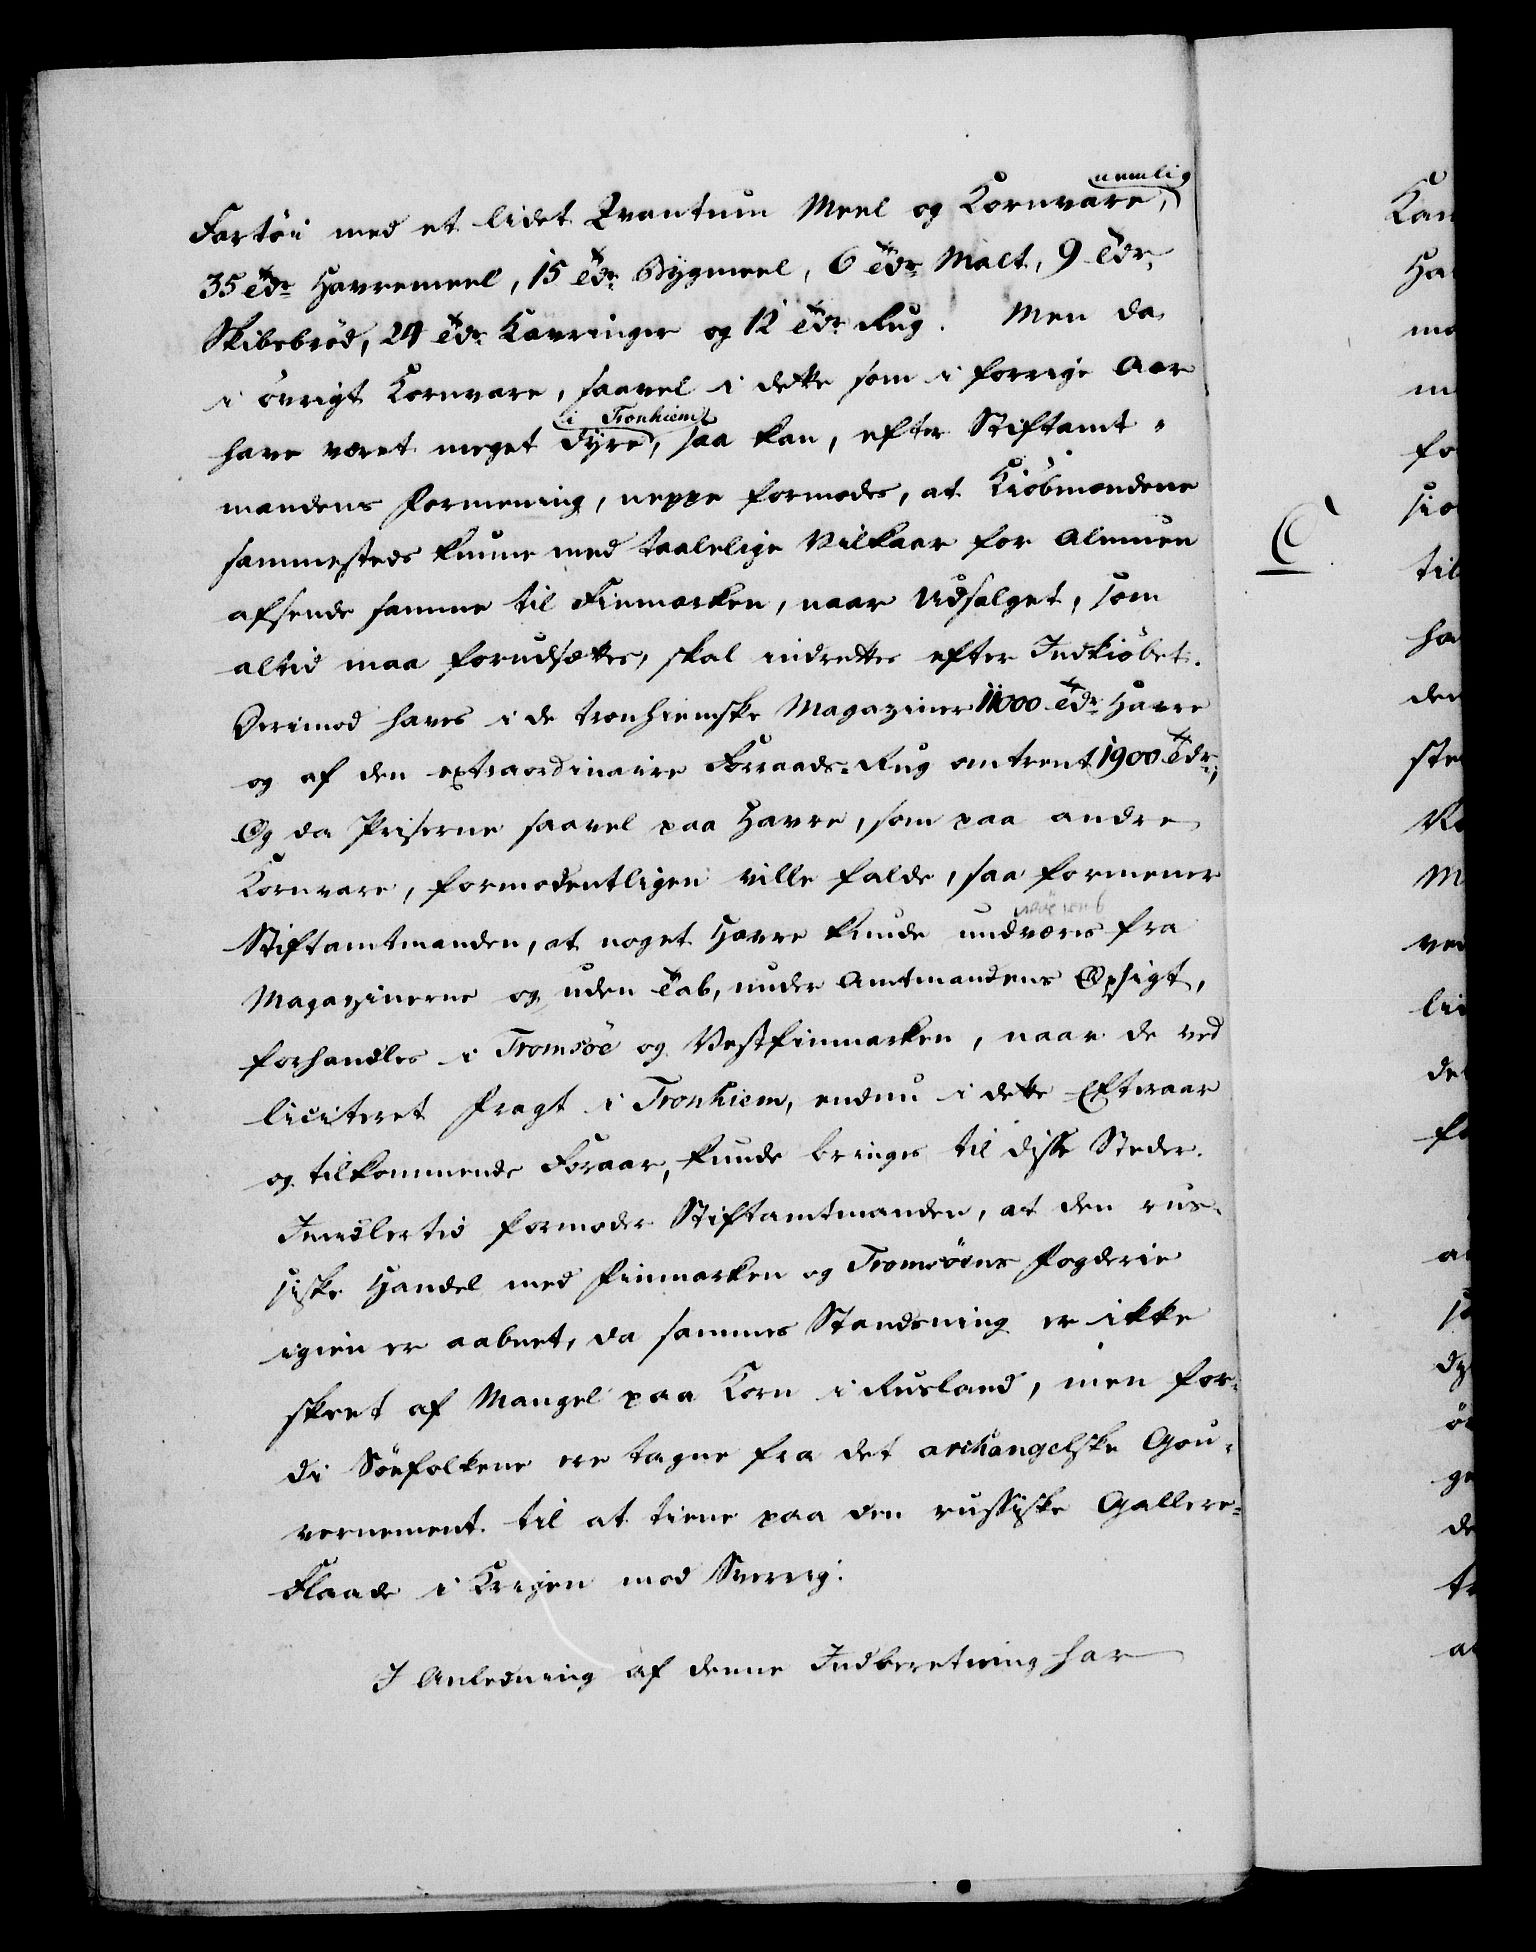 Fartöi med et lidet Qvantum Meel og Kornvare, nemlig
35 Tdr Havremeel, 15 Tdr Bygmeel, 6 Tdr Malt, 9 Tdr
Skibsbröd, 24 Tdr Kavringer og 12 Tdr Rug. Men da
i övrigt Kornvare, saavel i dette som i forrige Aar
have været meget dyre i Tronhiem, saa kan, efter Stiftamt-
mandens Formening, neppe formodes, at Kiöbmændene
sammesteds kunne med taalelige Vilkaar for Almuen
afsende samme til Finmarken, naar Udsalget, som
altid maa forudsættes, skal indrettes efter Indkiöbet.
Derimod haves i de tronhiemske Magaziner 11000 Tdr Havre
og af den extraordinaire Forraads-Rug omtrent 1900 Tdr;
Og da Priserne saavel paa Havre, som paa andre
Kornvare, formodentligen ville falde, saa formener
Stiftamtmanden, at noget Havre kunde undværes fra
Magazinerne og uden Tab, under Amtmandens Opsigt,
forhandles i Tromsöe og Vestfinmarken, naar de ved
liciteret Fragt i Tronhiem, endnu i dette Efteraar
og tilkommende Foraar, kunde bringes til disse Steder.
Imidlertid formoder Stiftamtmanden, at den rus-
siske Handel med Finmarken og Tromsöens Fogderie
igien er aabnet, da sammes Standsning er ikke
skeet af Mangel paa Korn i Rusland, men for-
di Söefolkene ere tagne fra det archangelske Gou-
vernement til at tiene paa den russiske Gallere-
Flaade i Krigen mod Sverrig.
I Anledning af denne Indberetning har